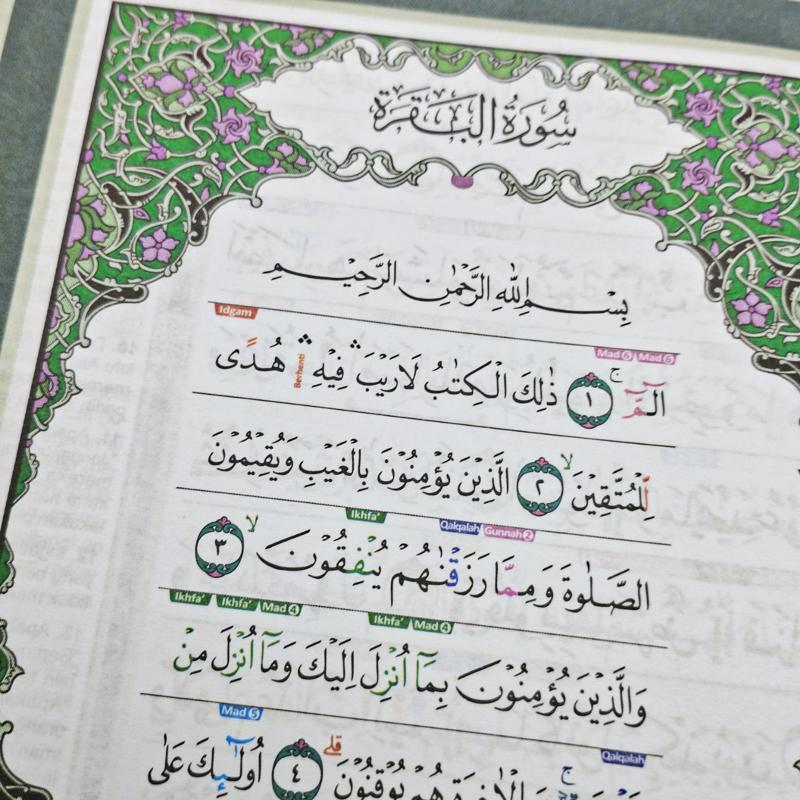 سُورَةُ الْبَقَرَةِ
بِسْمِ اللّٰهِ الرَّحْمٰنِ الرَّحِيْمِ
Idgam Mad 6 Mad 6
الۤمّۤ ۚ ١ ذٰلِكَ الْكِتٰبُ لَا رَيْبَ ۛ فِيْهِ ۛ هُدًى
Berhenti
لِّلْمُتَّقِيْنَ ۙ ٢ الَّذِيْنَ يُؤْمِنُوْنَ بِالْغَيْبِ وَيُقِيْمُوْنَ
Ikhfa' Qalqalah Gunnah 2
الصَّلٰوةَ وَمِمَّا رَزَقْنٰهُمْ يُنْفِقُوْنَ ۙ ٣
Ikhfa' Ikhfa' Mad 4 Ikhfa' Mad 4
وَالَّذِيْنَ يُؤْمِنُوْنَ بِمَآ اُنْزِلَ اِلَيْكَ وَمَآ اُنْزِلَ مِنْ
Mad 5 Qalqalah
هُمْ يُوْقِنُوْنَ ۗ ٤ اُولٰۤىِٕكَ عَلٰى